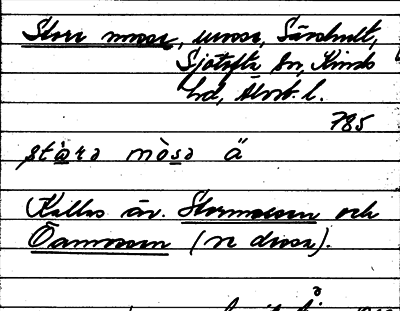 Store mosse, mosse, Särshult,
Sjötofta sn, Kinds
hd, Älvsb. l.
785
stạ̀rə mòsə ä
Kallas äv. Stormossen och
Öamossen (se dessa).